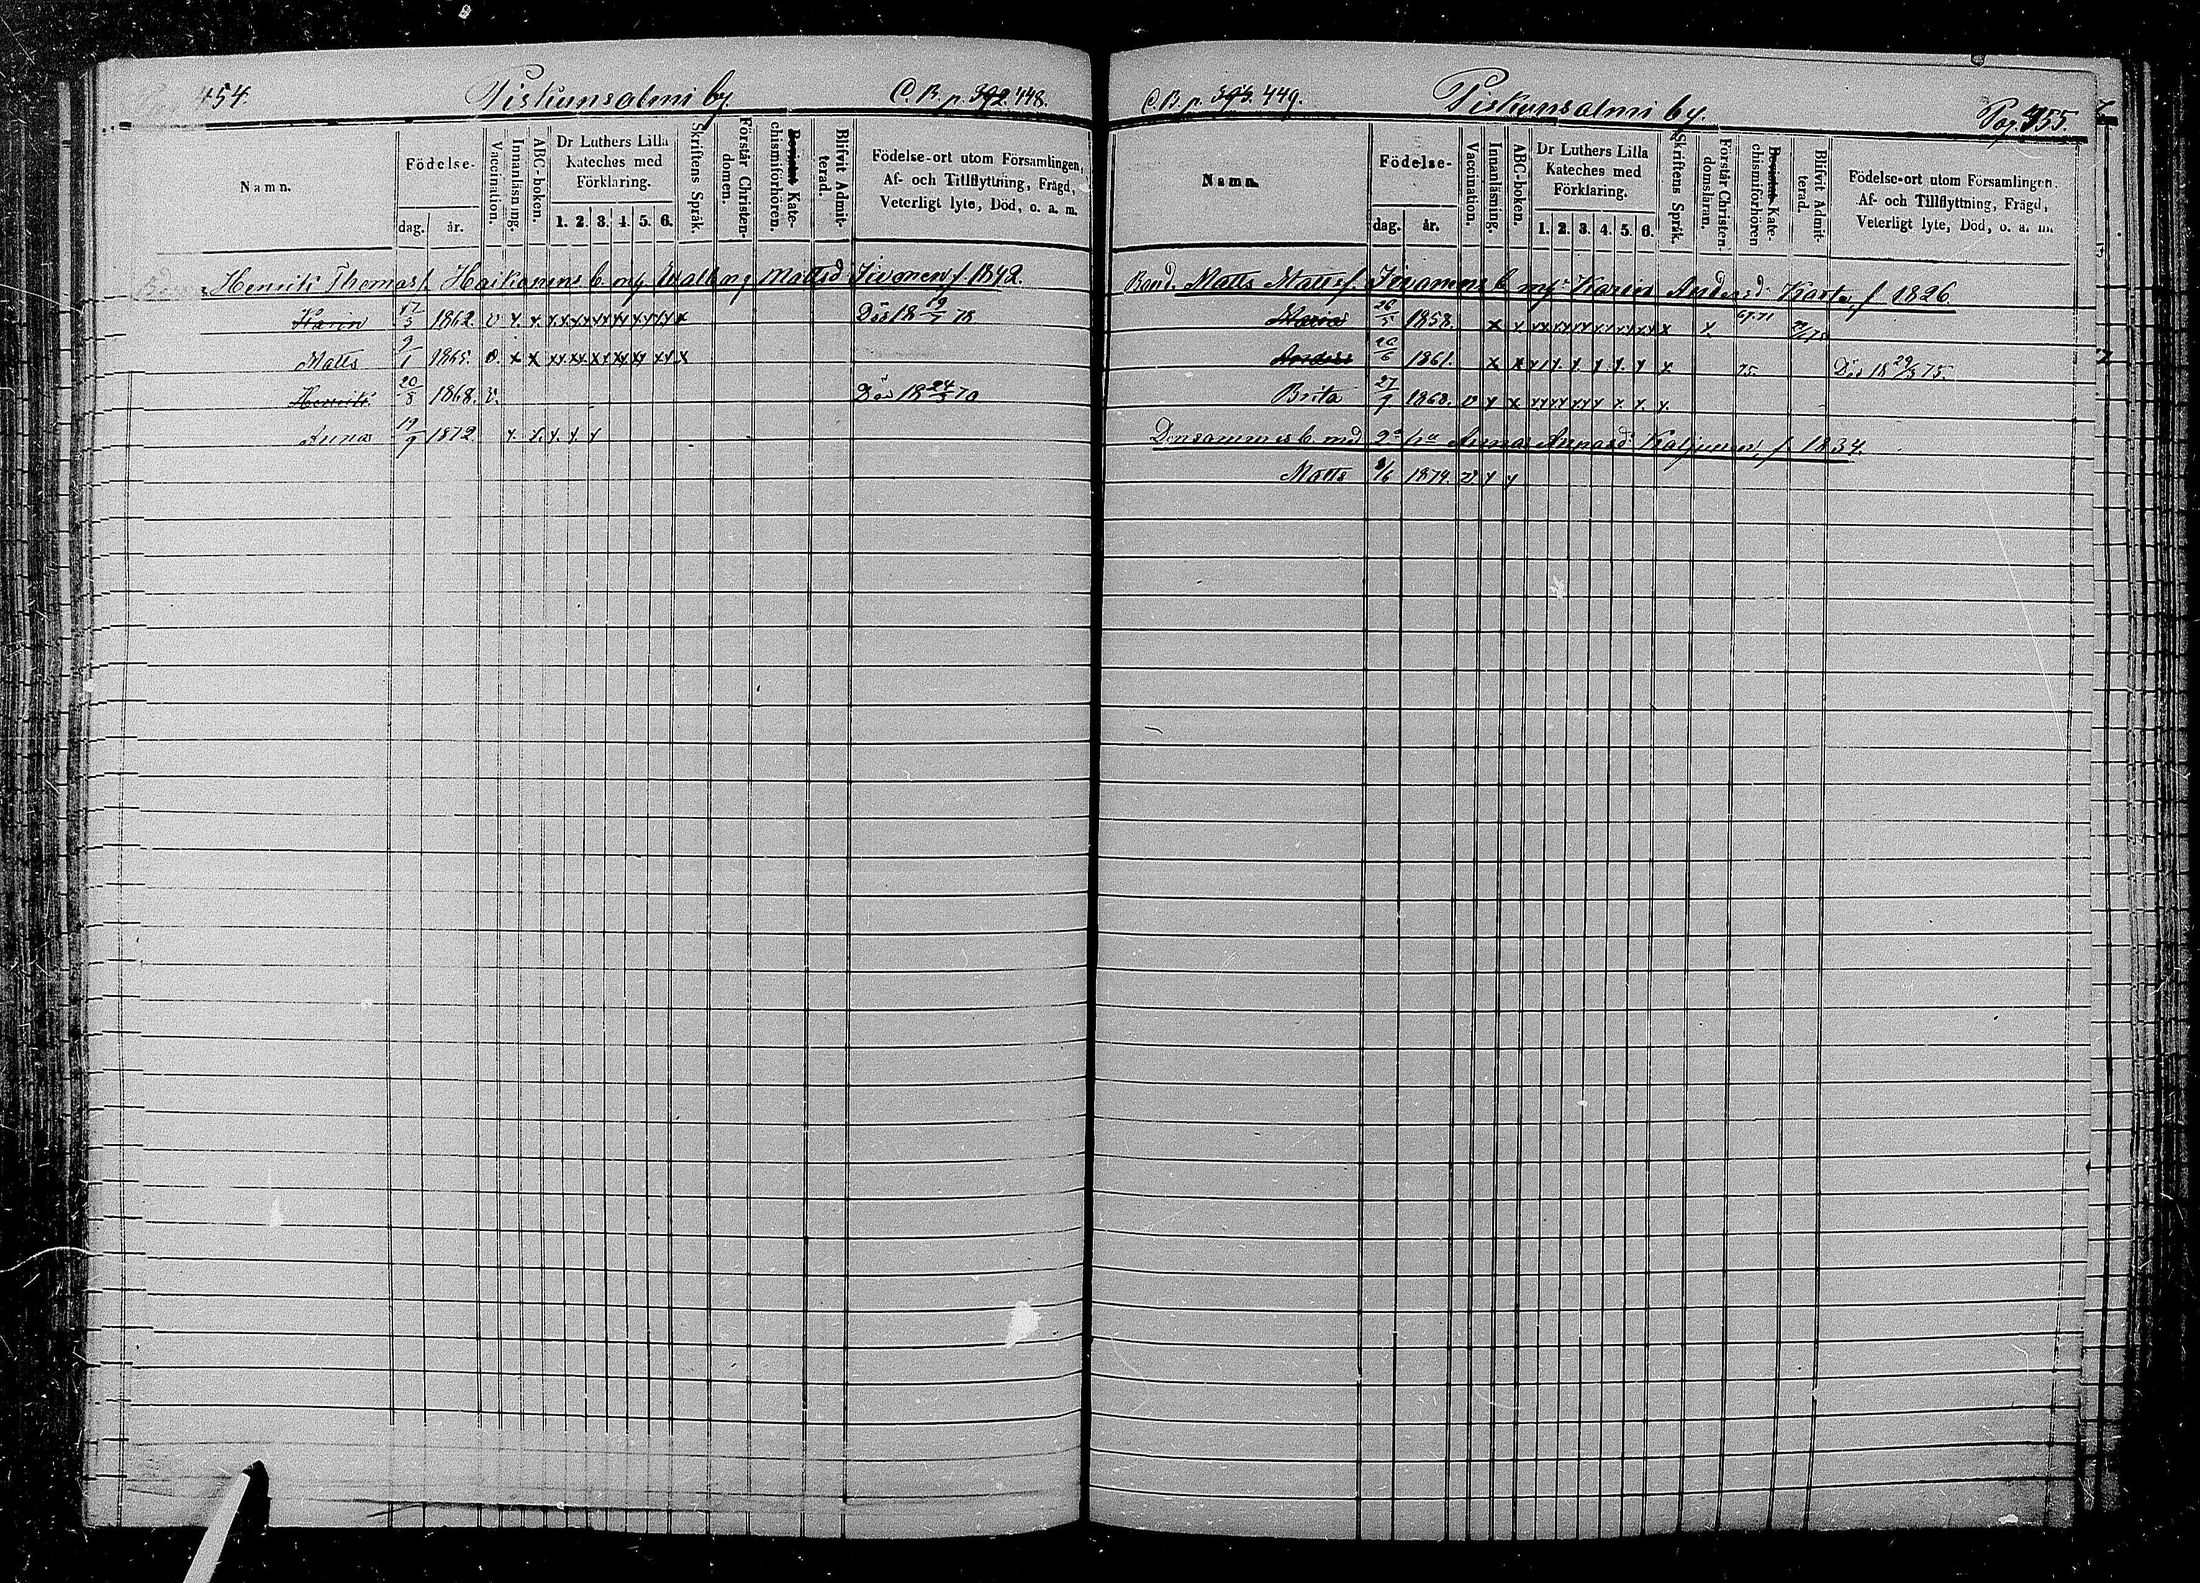 454. Piskunsalmi by. C. B. p. 392. 448.
Namn. Födelse- dag. år. Vaccination. Innanläsning. ABC-boken. Dr Luthers Lilla Kateches med Förklaring. 1. 2. 3. 4. 5. 6. Skriftens Språk. Förstår Christendomen. Bevistat Katechismiförhören. Blifvit Admitterad. Födelse-ort utom Församlingen, Af- och Tillflyttning, Frägd, Veterligt lyte, Död, o. a. m.
Henrik Thomasf. Haikonens b. m/ Walborg Mattsd Iivonen f. 1842.
Karin 17/3 1862. v x. x. x x x x x x x x x x x x x Död 18 19/7 78
Matts 9/1 1865. v. x x xx xx xx xx xx xx x
Henrik 20/3 1868. v. Död 18 24/3 70
Anna 19/9 1872 x. x. x. x. x
C. B. p. 393. 449. Piskunsalmi by. Pag. 455.
Namn. Födelse- dag. år. Vaccination. Innanläsning. ABC-boken. Dr Luthers Lilla Kateches med Förklaring. 1. 2. 3. 4. 5. 6. Skriftens Språk. Förstår Christendomsläran. Bevistat Katechismiförhören Blifvit Admitterad. Födelse-ort utom Församlingen. Af- och Tillflyttning, Frägd, Veterligt lyte, Död, o. a. m.
Bond. Matts Mattsf. b. m/ Karin Andersd. f 1826
Maria 26/5 1858. x x xx xx xx xx xx xx x x 69.71
Anders 20/6 1861. x x x x x. x. x. x. x x. 75. Död 18 29/3 75.
Brita 27/7 1868. v x x xx xx xx x x. x. x.
Densammes b. med 2a h:u Anna f 1834.
Matts 8/6 1874. v x x